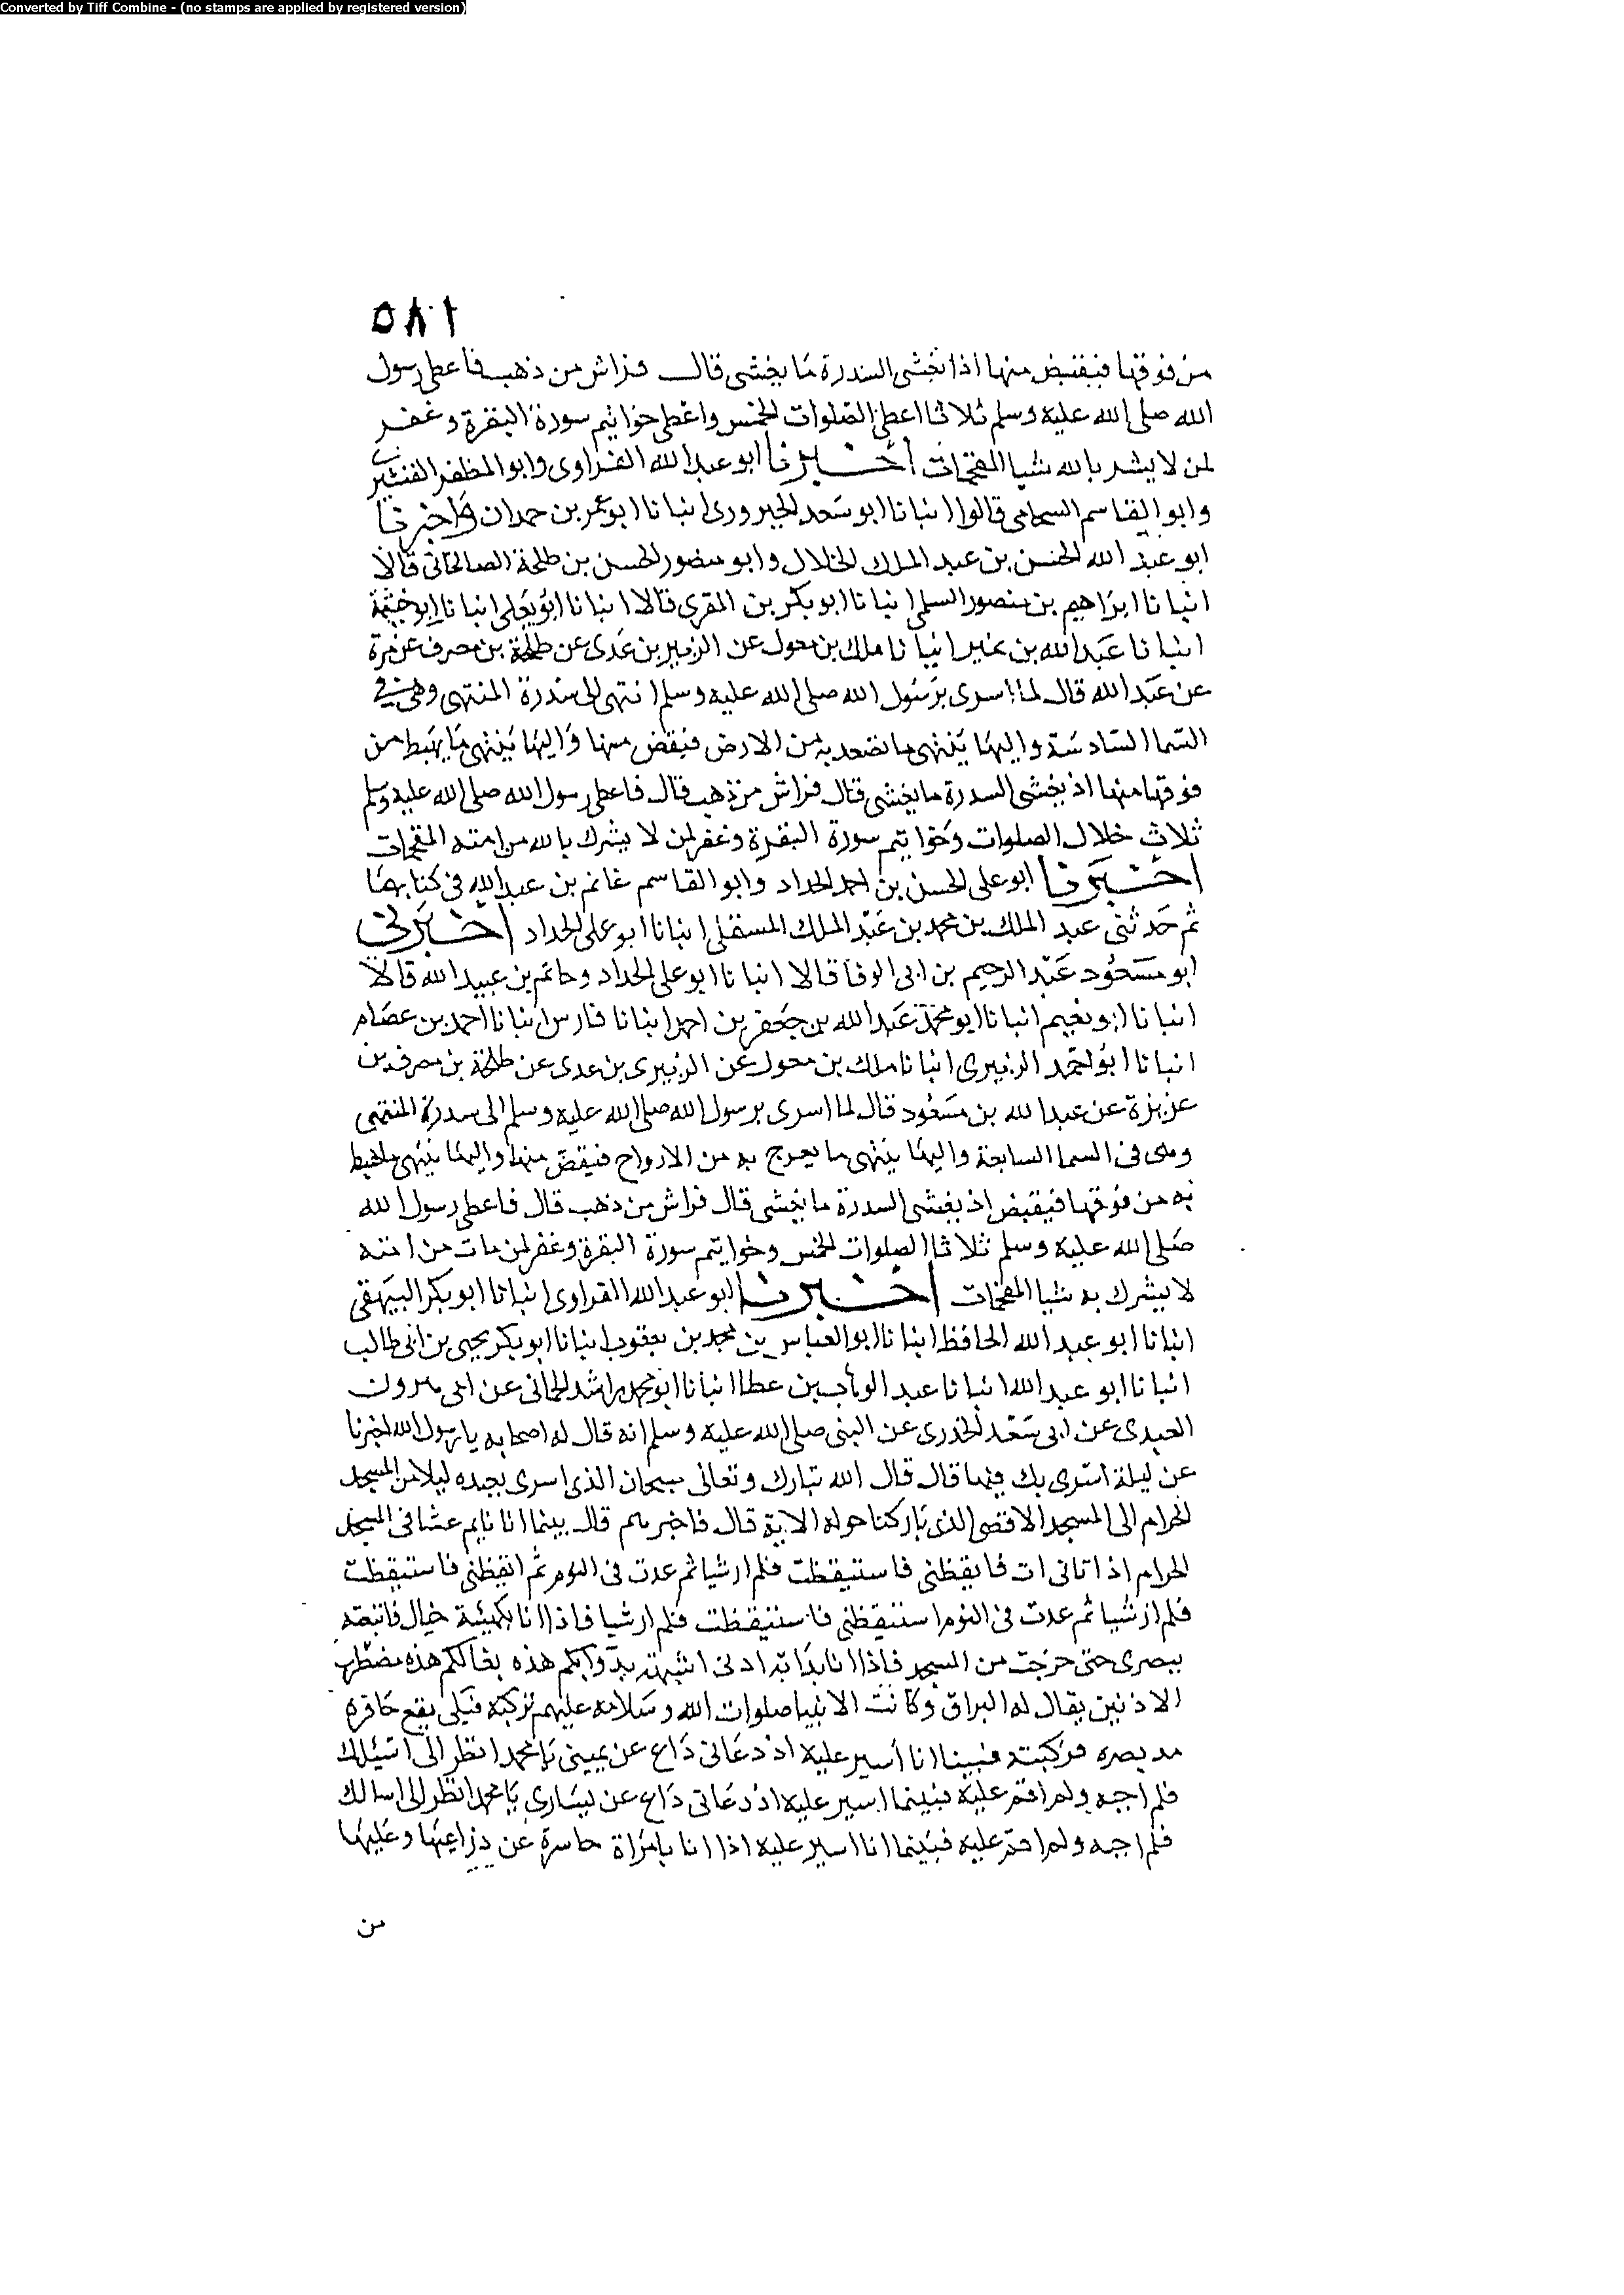 Converted by Tiff Combine - (no stamps are applied by registered version)
٥٨٦
من فوقها فيقبض منها اذا يغشى السدرة ما يغشى قال فراش من ذهب فاعطي رسول
الله صلى الله عليه وسلم ثلاثا اعطي الصلوات الخمس واعطي خواتيم سورة البقرة وغفر
لمن لا يشرك بالله شيا المقحمات اخبرنا ابو عبد الله الفراوى وابو المظفر القشيري
وابو القاسم السحامى قالوا انبانا ابو سعد الجيرورى انبانا ابو عمر بن حمدان واخبرنا
ابو عبد الله الحسن بن عبد الملك الخلال وابو منصور الحسن بن طلحة الصالحانى قالا
انبانا ابراهيم بن منصور السلمى انبانا ابو بكر بن المقرى قالا انبانا ابو يعلى انبانا ابو خيثمة
انبانا عبد الله بن نمير انبانا ملك بن مغول عن الزبير بن عدى عن طلحة بن مصرف عن مرة
عن عبد الله قال لما اسرى برسول الله صلى الله عليه وسلم انتهى الى سدرة المنتهى وهى في
السما السادسة واليها ينتهى ما تصعد به من الارض فيقض منها واليها ينتهى ما يهبط من
فوقها منها اذ يغشى السدرة ما يغشى قال فراش من ذهب قال فاعطي رسول الله صلى الله عليه وسلم
ثلاث خلال الصلوات وخواتيم سورة البقرة وغفر لمن لا يشرك بالله من امته المقحمات
اخبرنا ابو على الحسن بن احمد الحداد وابو القاسم غانم بن عبد الله فى كتابهما
ثم حدثنى عبد الملك بن محمد بن عبد الملك المستملى انبانا ابو على الحداد اخبرنى
ابو مسعود عبد الرحيم بن ابى الوفا قالا انبانا ابو على الحداد وحانم بن عبيد الله قالا
انبانا ابو نعيم انبانا ابو محمد عبد الله بن جعفر بن احمد انبانا فارس انبانا احمد بن عصام
انبانا ابو احمد الزبيرى انبانا ملك بن مغول عن الزبيرى بن عدى عن طلحة بن مصرف بن
عن بزة عن عبد الله بن مسعود قال لما اسرى برسول الله صلى الله عليه وسلم الى سدرة المنتهى
وهى فى السما السابعة واليها ينتهى ما يعرج به من الارواح فيقض منها واليها ينتهى ما هبط
به من فوقها فيقبض اذ يغشى السدرة ما يغشى قال فراش من ذهب قال فاعطي رسول الله
صلى الله عليه وسلم ثلاثا الصلوات الخمس وخواتيم سورة البقرة وغفر لمن مات من امته
لا يشرك به شيا المقحمات اخبرنا ابو عبد الله الفراوى انبانا ابو بكر البيهقى
انبانا ابو عبد الله الحافظ انبانا ابو العباس بن محمد بن يعقوب انبانا ابو بكر يحيى بن ابى طالب
انبانا ابو عبد الله انبانا عبد الوهاب بن عطا انبانا ابو محمد راشد الحمانى عن ابى هرون
العبدى عن ابى سعد الخدرى عن النبى صلى الله عليه وسلم انه قال له اصحابه يا رسول الله اخبرنا
عن ليلة اسرى بك فيها قال قال الله تبارك وتعالى سبحان الذى اسرى بعبده ليلا من المسجد
الحرام الى المسجد الاقصى الذى باركنا حوله الاية قال فاخبرهم قال بينما انا نايم عشا فى المسجد
الحرام اذ اتانى ات فايقظنى فاستيقظت فلم ار شيا ثم عدت فى النوم ثم ايقظنى فاستيقظت
فلم ار شيا ثم عدت فى النوم استيقظنى فاستيقظت فلم ار شيا فاذا انا بكهيئة خيال فاتبعته
ببصرى حتى خرجت من المسجد فاذا انا بدابة ادنى اشبهته بدوابكم هذه بغالكم هذه مضطرب
الاذنين يقال له البراق وكانت الانبيا صلوات الله وسلامه عليهم تركبه قبلى يقع حافره
مد بصره فركبته فبينا انا اسير عليه اذ دعانى داع عن يمينى يا محمد انظر الى اسئلك
فلم اجبه ولم اقم عليه فبينما اسير عليه اذ دعانى داع عن يسارى يا محمد انظر الى اسالك
فلم اجبه ولم اقم عليه فبينما انا اسير عليه اذا انا بامراة حاسرة عن ذراعيها وعليها
من